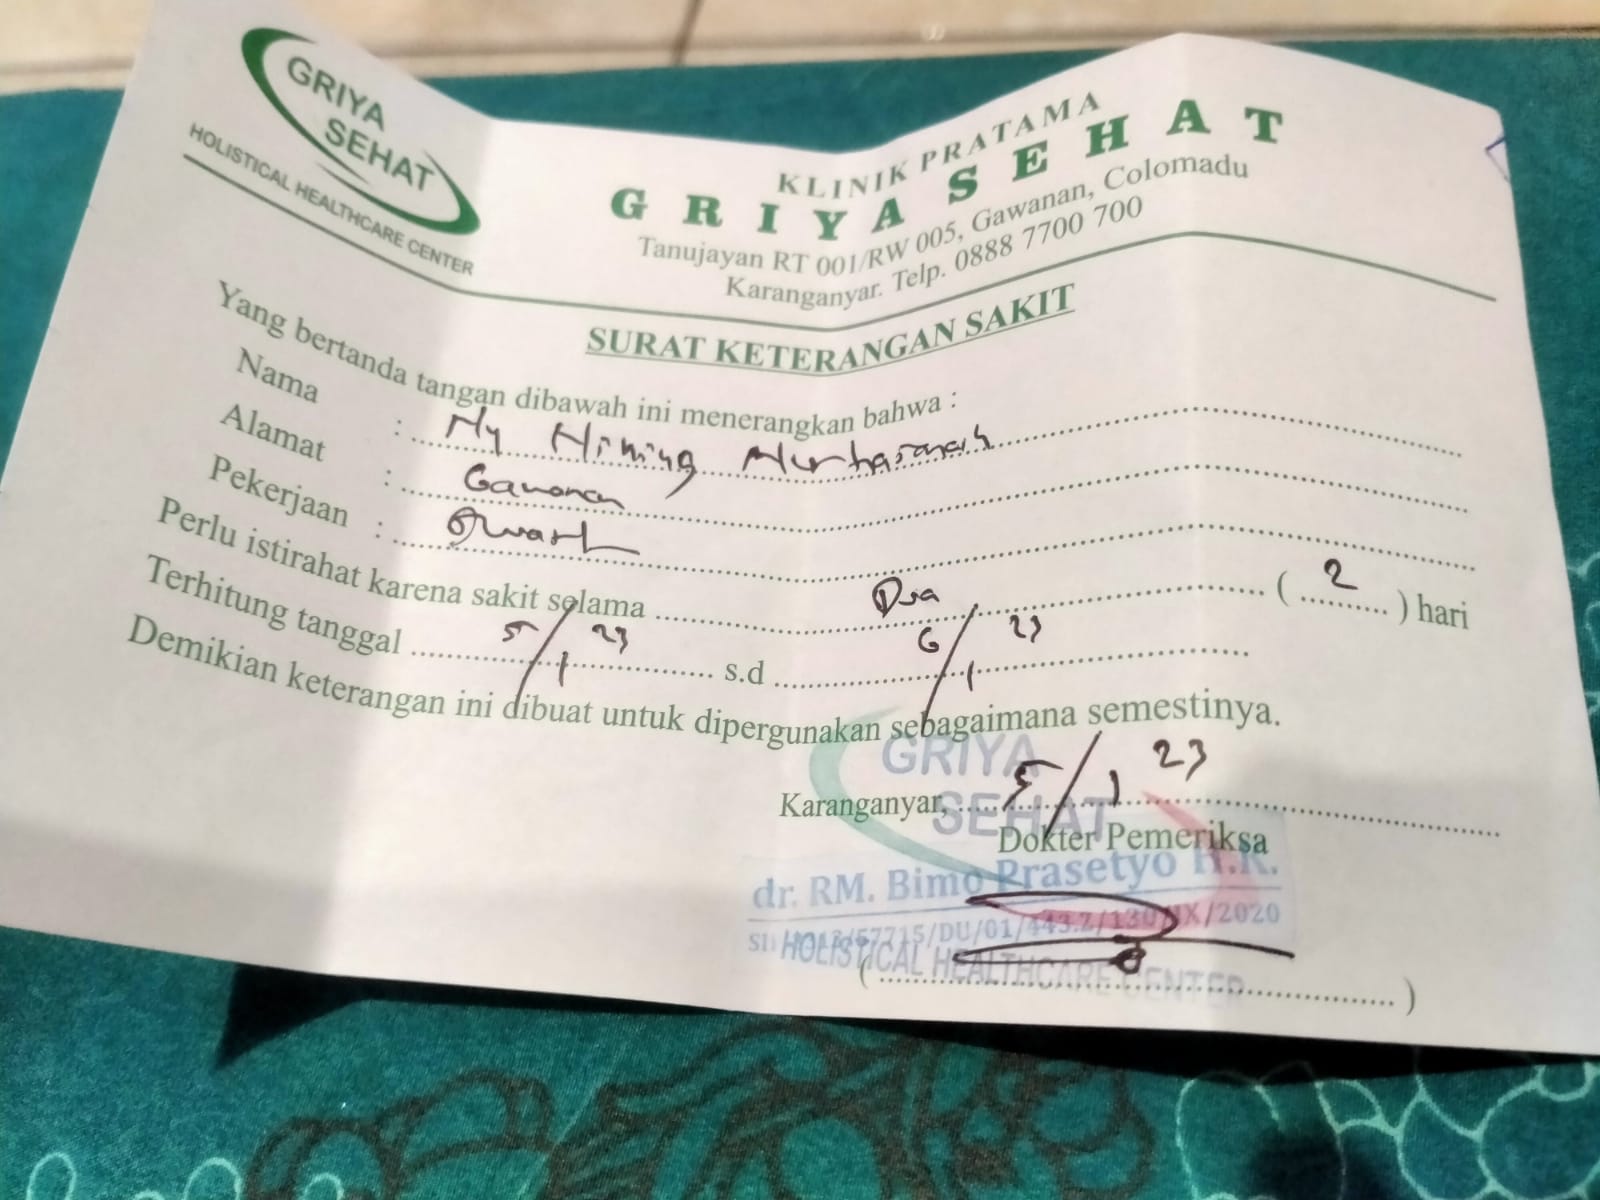 GRIYA
SEHAT
HOLISTICAL HEALTHCARE CENTER
KLINIK PRATAMA
GRIYA SEHAT
Tanujayan RT 001/RW 005, Gawanan, Colomadu
Karanganyar. Telp. 0888 7700 700
SURAT KETERANGAN SAKIT
Yang bertanda tangan dibawah ini menerangkan bahwa :
Nama : Ny Nurhasanah
Alamat : Gawanan
Pekerjaan : Swast
Perlu istirahat karena sakit selama Dua ( 2 ) hari
Terhitung tanggal 5/1 23 s.d 6/1 23
Demikian keterangan ini dibuat untuk dipergunakan sebagaimana semestinya.
Karanganyar, 5/1 23
Dokter Pemeriksa
GRIYA
SEHAT
dr. RM. Bimo Prasetyo H.K.
/DU/01/443.2/130/IX/2020
HOLISTICAL HEALTHCARE CENTER